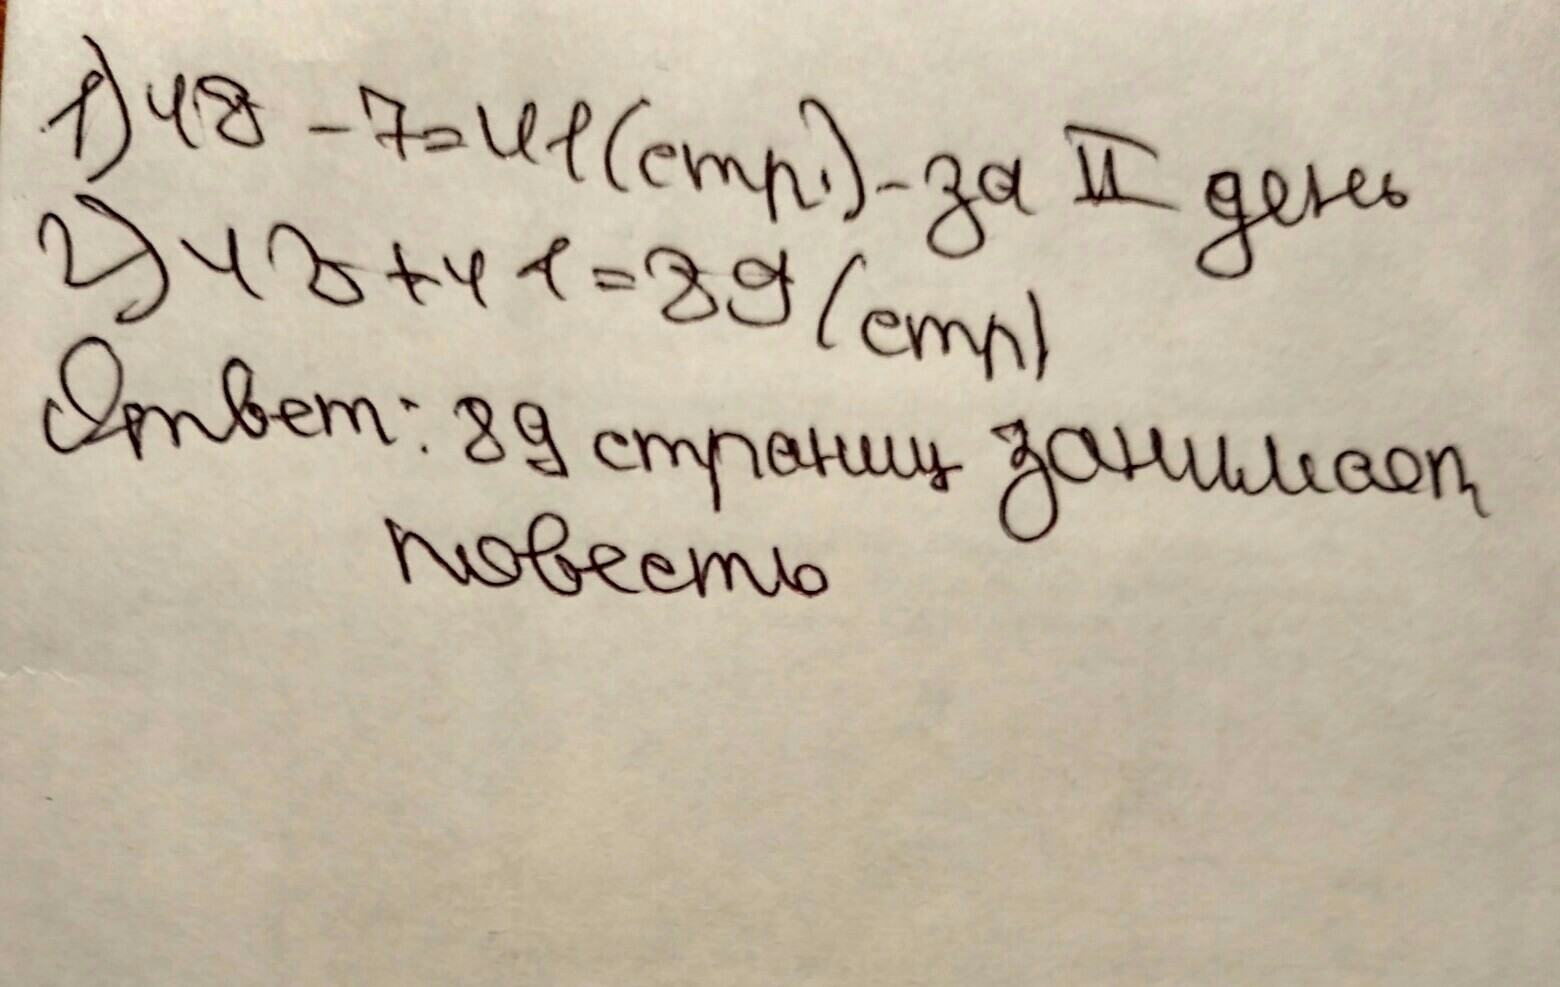 1) 48 - 7 = 41 (стр.) - за II день
2) 48 + 41 = 89 (стр)
Ответ: 89 страниц занимает
повесть